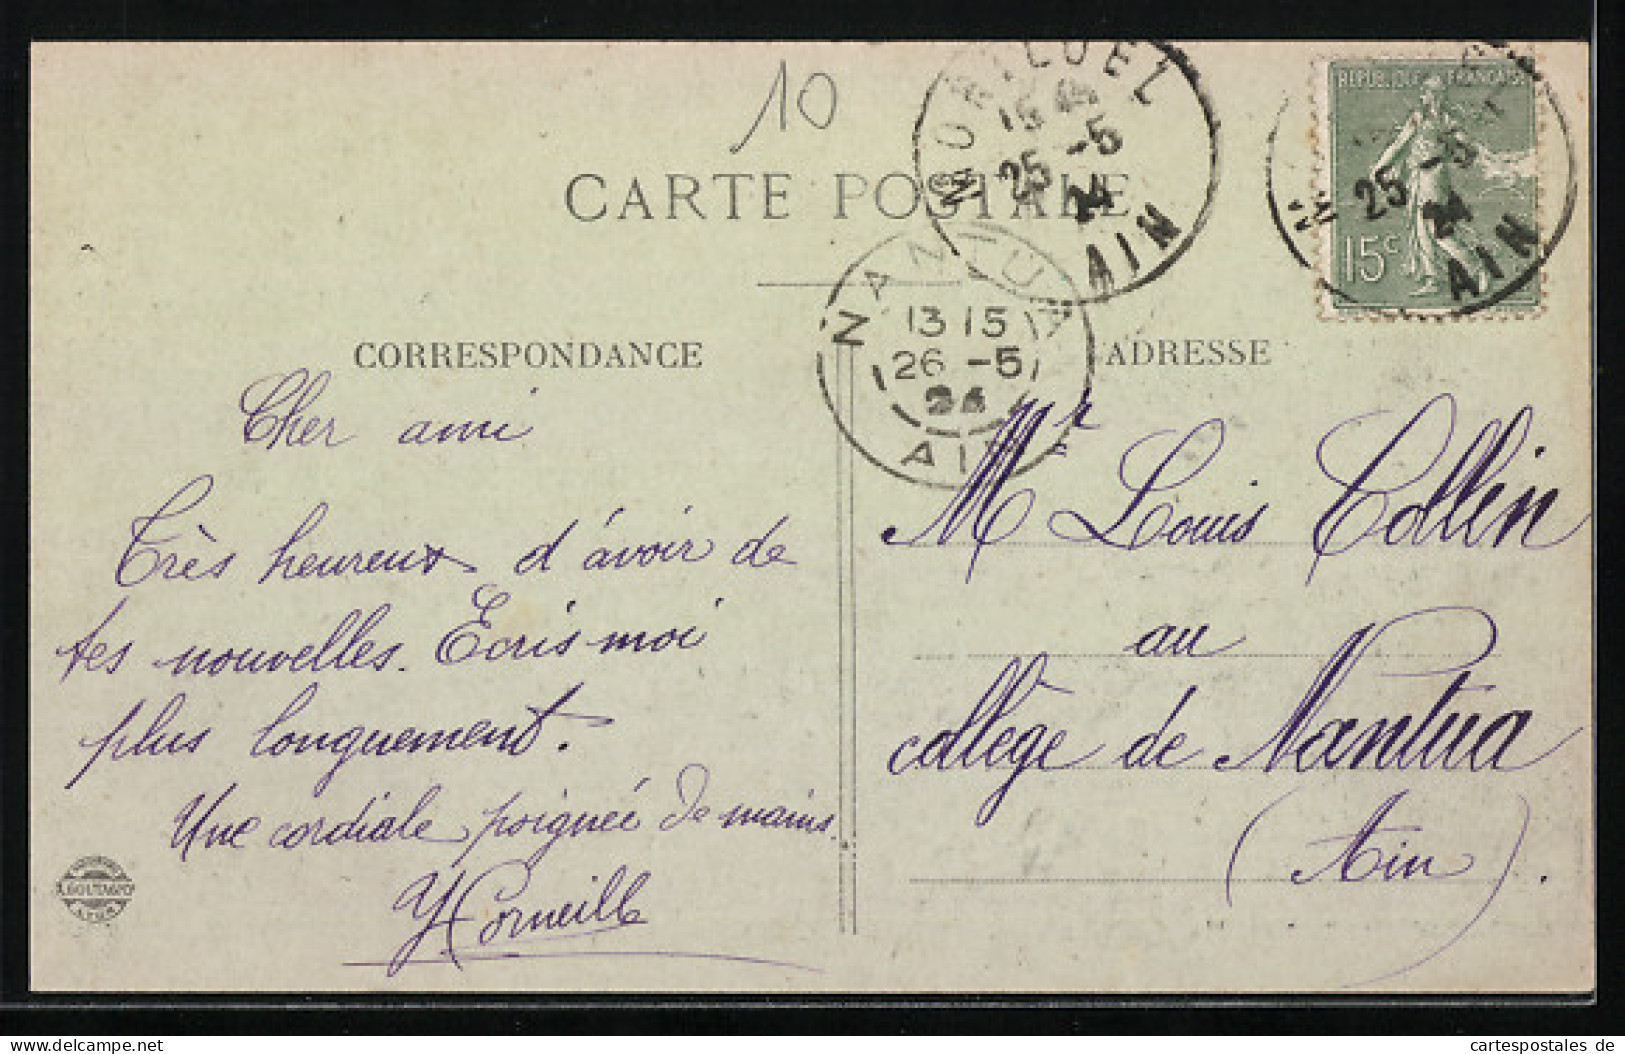 10
MONTLUEL
15 45
25 -5
24
AIN
REPUBLIQUE FRANÇAISE
15c
25 -5
24
AIN
CARTE POSTALE
NANTUA
13 15
26 -5
24
AIN
CORRESPONDANCE
ADRESSE
Cher ami
Très heureux d'avoir de
tes nouvelles. Ecris moi
plus longuement.
Une cordiale poignée de mains.
Y Corneille
Mr Louis Collin
au
collège de Nantua
(Ain).
LYON
delcampe.net
cartespostales de